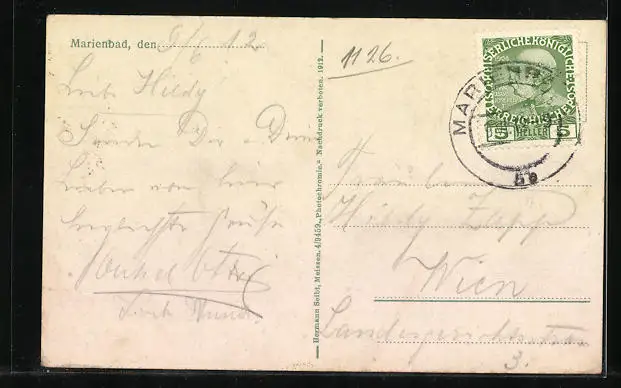 Marienbad, den 9/6 12
Liebe Hildy
Sende Dir & Deinen
Lieben von hier
herzlichste Grüße
Onkel Otto
Hermann Seibt, Meissen, 4/9459. „Photochromie.“ Nachdruck verboten. 1912.
1126.
KAISERLICHE KÖNIGLICHE
5 HELLER 5
MARIENB
Hildy Zapp
Wien
Landesgerichtsstrasse
3.